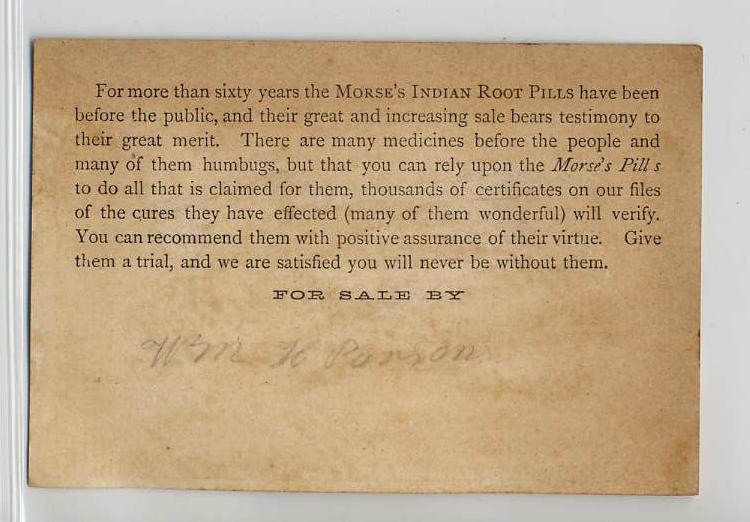 For more than sixty years the MORSE'S INDIAN ROOT PILLS have been
before the public, and their great and increasing sale bears testimony to
their great merit. There are many medicines before the people and
many of them humbugs, but that you can rely upon the Morse's Pill s
to do all that is claimed for them, thousands of certificates on our files
of the cures they have effected (many of them wonderful) will verify.
You can recommend them with positive assurance of their virtue. Give
them a trial, and we are satisfied you will never be without them.
FOR SALE BY
Wm H